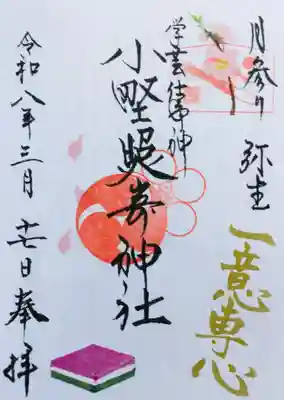 月参り 弥生
一意専心
学芸仕事神
小野照崎神社
令和八年三月十七日奉拝